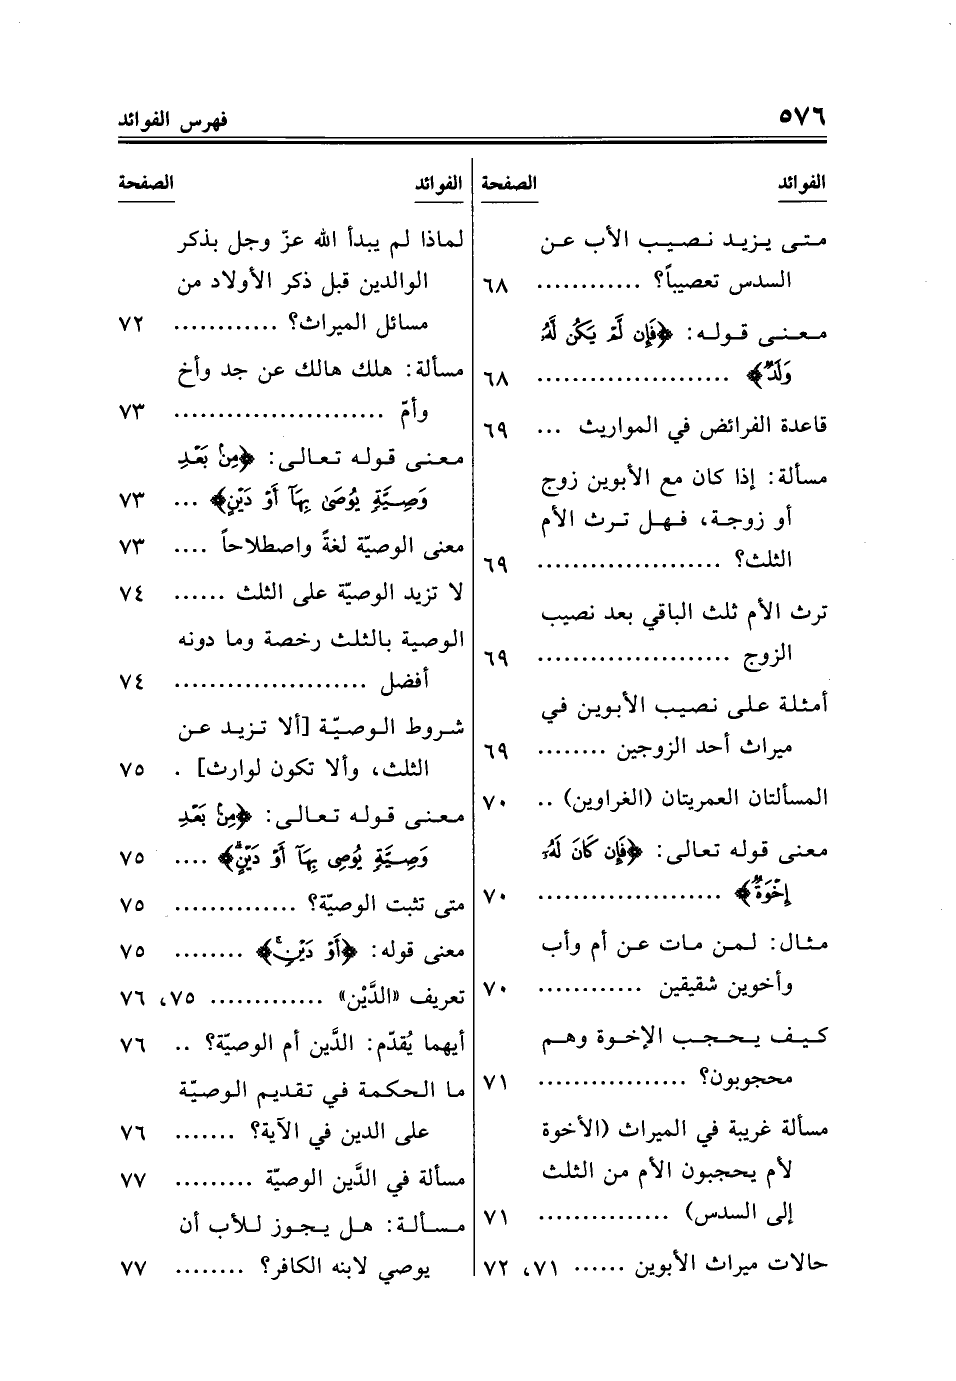 ٥٧٦
فهرس الفوائد
الفوائد
الصفحة
متى يزيد نصيب الأب عن
السدس تعصيباً؟ ............ ٦٨
معنى قوله: ﴿فَإِن لَّمْ يَكُن لَّهُۥ
وَلَدٌ﴾ ...................... ٦٨
قاعدة الفرائض في المواريث ... ٦٩
مسألة: إذا كان مع الأبوين زوج
أو زوجة، فهل ترث الأم
الثلث؟ ..................... ٦٩
ترث الأم ثلث الباقي بعد نصيب
الزوج ...................... ٦٩
أمثلة على نصيب الأبوين في
ميراث أحد الزوجين ........ ٦٩
المسألتان العمريتان (الغراوين) .. ٧٠
معنى قوله تعالى: ﴿فَإِن كَانَ لَهُۥٓ
إِخْوَةٌ﴾ ..................... ٧٠
مثال: لمن مات عن أم وأب
وأخوين شقيقين ............ ٧٠
كيف يحجب الإخوة وهم
محجوبون؟ ................. ٧١
مسألة غريبة في الميراث (الأخوة
لأم يحجبون الأم من الثلث
إلى السدس) ............... ٧١
حالات ميراث الأبوين ...... ٧١، ٧٢
الفوائد
الصفحة
لماذا لم يبدأ الله عزّ وجل بذكر
الوالدين قبل ذكر الأولاد من
مسائل الميراث؟ ............ ٧٢
مسألة: هلك هالك عن جد وأخ
وأمّ ........................ ٧٣
معنى قوله تعالى: ﴿مِنۢ بَعْدِ
وَصِيَّةٍ يُوصَىٰ بِهَآ أَوْ دَيْنٍ﴾ ... ٧٣
معنى الوصيّة لغةً واصطلاحاً .... ٧٣
لا تزيد الوصيّة على الثلث ...... ٧٤
الوصية بالثلث رخصة وما دونه
أفضل ...................... ٧٤
شروط الوصيّة [ألا تزيد عن
الثلث، وألا تكون لوارث] . ٧٥
معنى قوله تعالى: ﴿مِنۢ بَعْدِ
وَصِيَّةٍ يُوصِى بِهَآ أَوْ دَيْنٍ﴾ .... ٧٥
متى تثبت الوصيّة؟ .............. ٧٥
معنى قوله: ﴿أَوْ دَيْنٍ﴾ ........ ٧٥
تعريف «الدَّيْن» ............. ٧٥، ٧٦
أيهما يُقدّم: الدَّين أم الوصيّة؟ .. ٧٦
ما الحكمة في تقديم الوصيّة
على الدين في الآية؟ ....... ٧٦
مسألة في الدَّين الوصيّة ......... ٧٧
مسألة: هل يجوز للأب أن
يوصي لابنه الكافر؟ ........ ٧٧